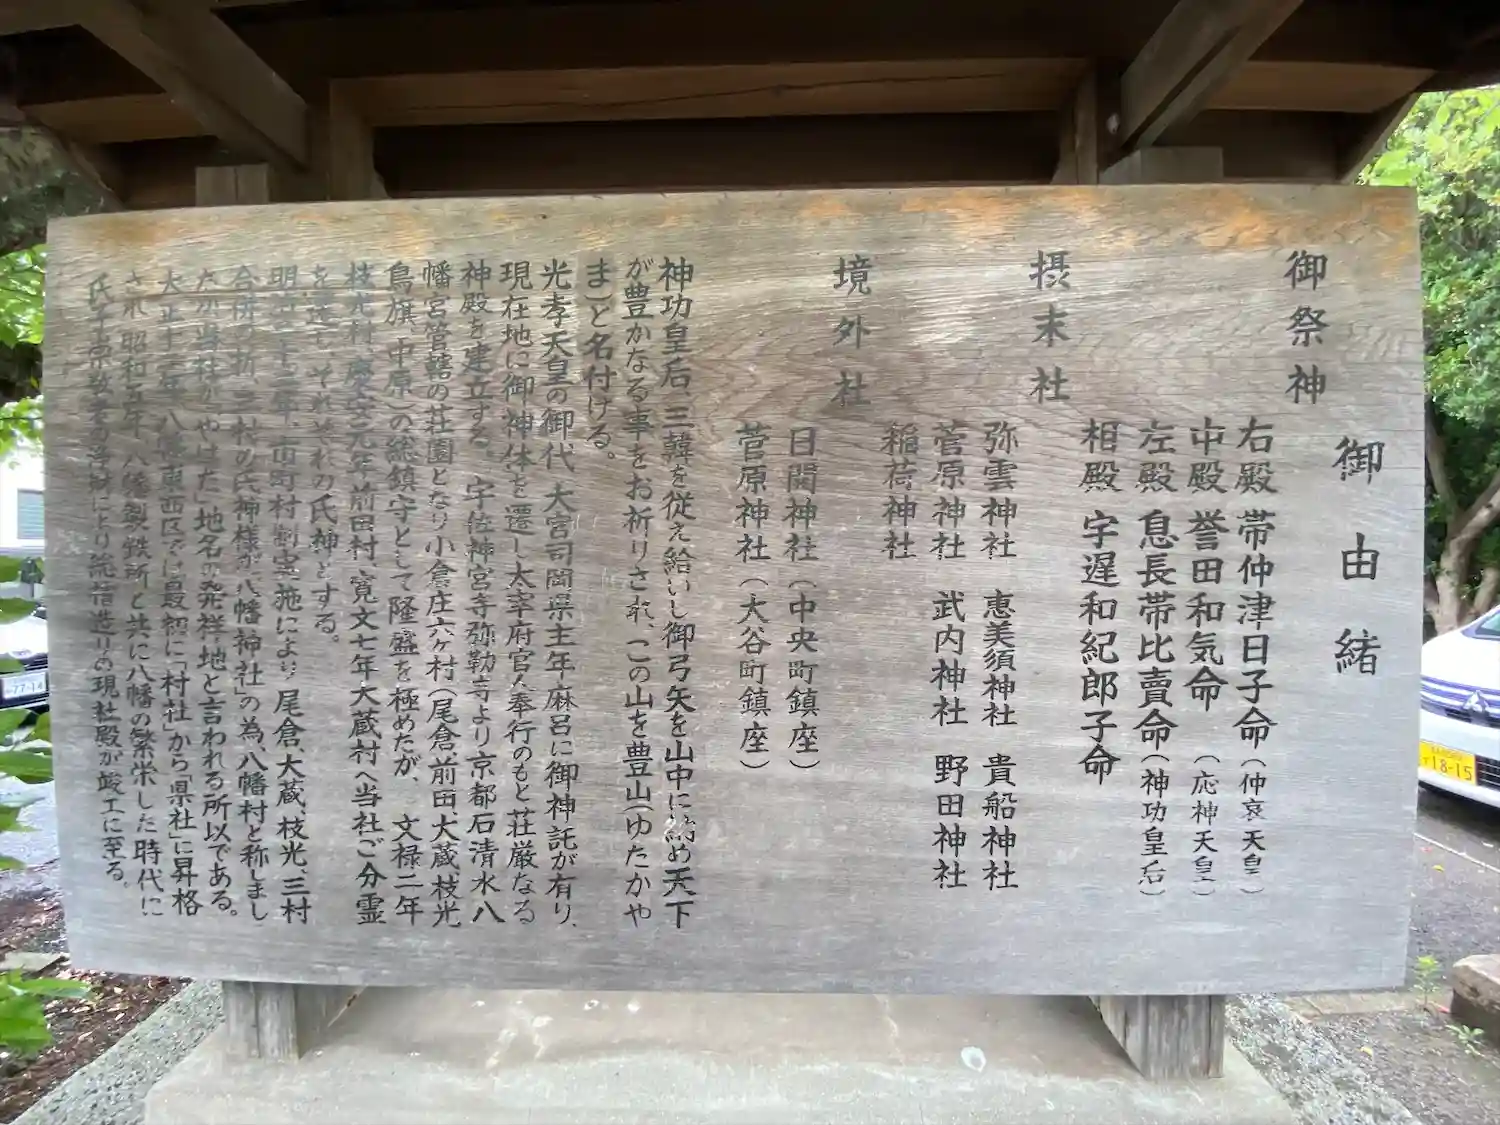 御由緒
御祭神
右殿 帯仲津日子命(仲哀天皇)
中殿 誉田和気命(応神天皇)
左殿 息長帯比賣命(神功皇后)
相殿 宇遅和紀郎子命
摂末社
弥雲神社 恵美須神社 貴船神社
菅原神社 武内神社 野田神社
稲荷神社
境外社
日関神社(中央町鎮座)
菅原神社(大谷町鎮座)
神功皇后、三韓を従え給いし御弓矢を山中に納め天下
が豊かなる事をお祈りされ、この山を豊山(ゆたかや
ま)と名付ける。
光孝天皇の御代、大宮司岡県主年麻呂に御神託が有り、
現在地に御神体を遷し太宰府官人奉行のもと荘厳なる
神殿を建立する。宇佐神宮寺弥勒寺より京都石清水八
幡宮管轄の荘園となり小倉庄六ヶ村(尾倉、前田、大蔵、枝光
鳥旗、中原)の総鎮守として隆盛を極めたが、文禄二年
枝光村、慶安元年前田村、寛文七年大蔵村へ当社ご分霊
を遷し、それぞれの氏神とする。
明治二十二年、市町村制実施により尾倉、大蔵、枝光、三村
合併の折、三村の氏神様が「八幡神社」の為、八幡村と称しまし
たが当社が「やはた」地名の発祥地と言われる所以である。
大正十一年、八幡東西区では最初に「村社」から「県社」に昇格
され、昭和五年、八幡製鉄所と共に八幡の繁栄した時代に
氏子崇敬者の浄財により総檜造りの現社殿が竣工に至る。
77-14
18-15